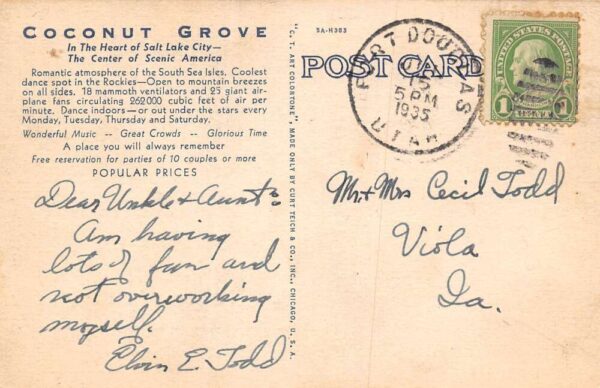 COCONUT GROVE
In The Heart of Salt Lake City—
The Center of Scenic America
Romantic atmosphere of the South Sea Isles. Coolest
dance spot in the Rockies—Open to mountain breezes
on all sides. 18 mammoth ventilators and 25 giant air-
plane fans circulating 262000 cubic feet of air per
minute. Dance indoors—or out under the stars every
Monday, Tuesday, Thursday and Saturday.
Wonderful Music -- Great Crowds -- Glorious Time
A place you will always remember
Free reservation for parties of 10 couples or more
POPULAR PRICES
Dear Unkle & Aunt:
Am having
lots of fun and
not overworking
myself.
Elvin E. Todd
"C.T. ART-COLORTONE" MADE ONLY BY CURT TEICH & CO., INC., CHICAGO, U.S.A.
5A-H383
POST CARD
FORT DOUGLAS
15
5 PM
1935
UTAH
UNITED STATES POSTAGE
1 CENT 1
Mr. & Mrs Cecil Todd
Viola
Ia.